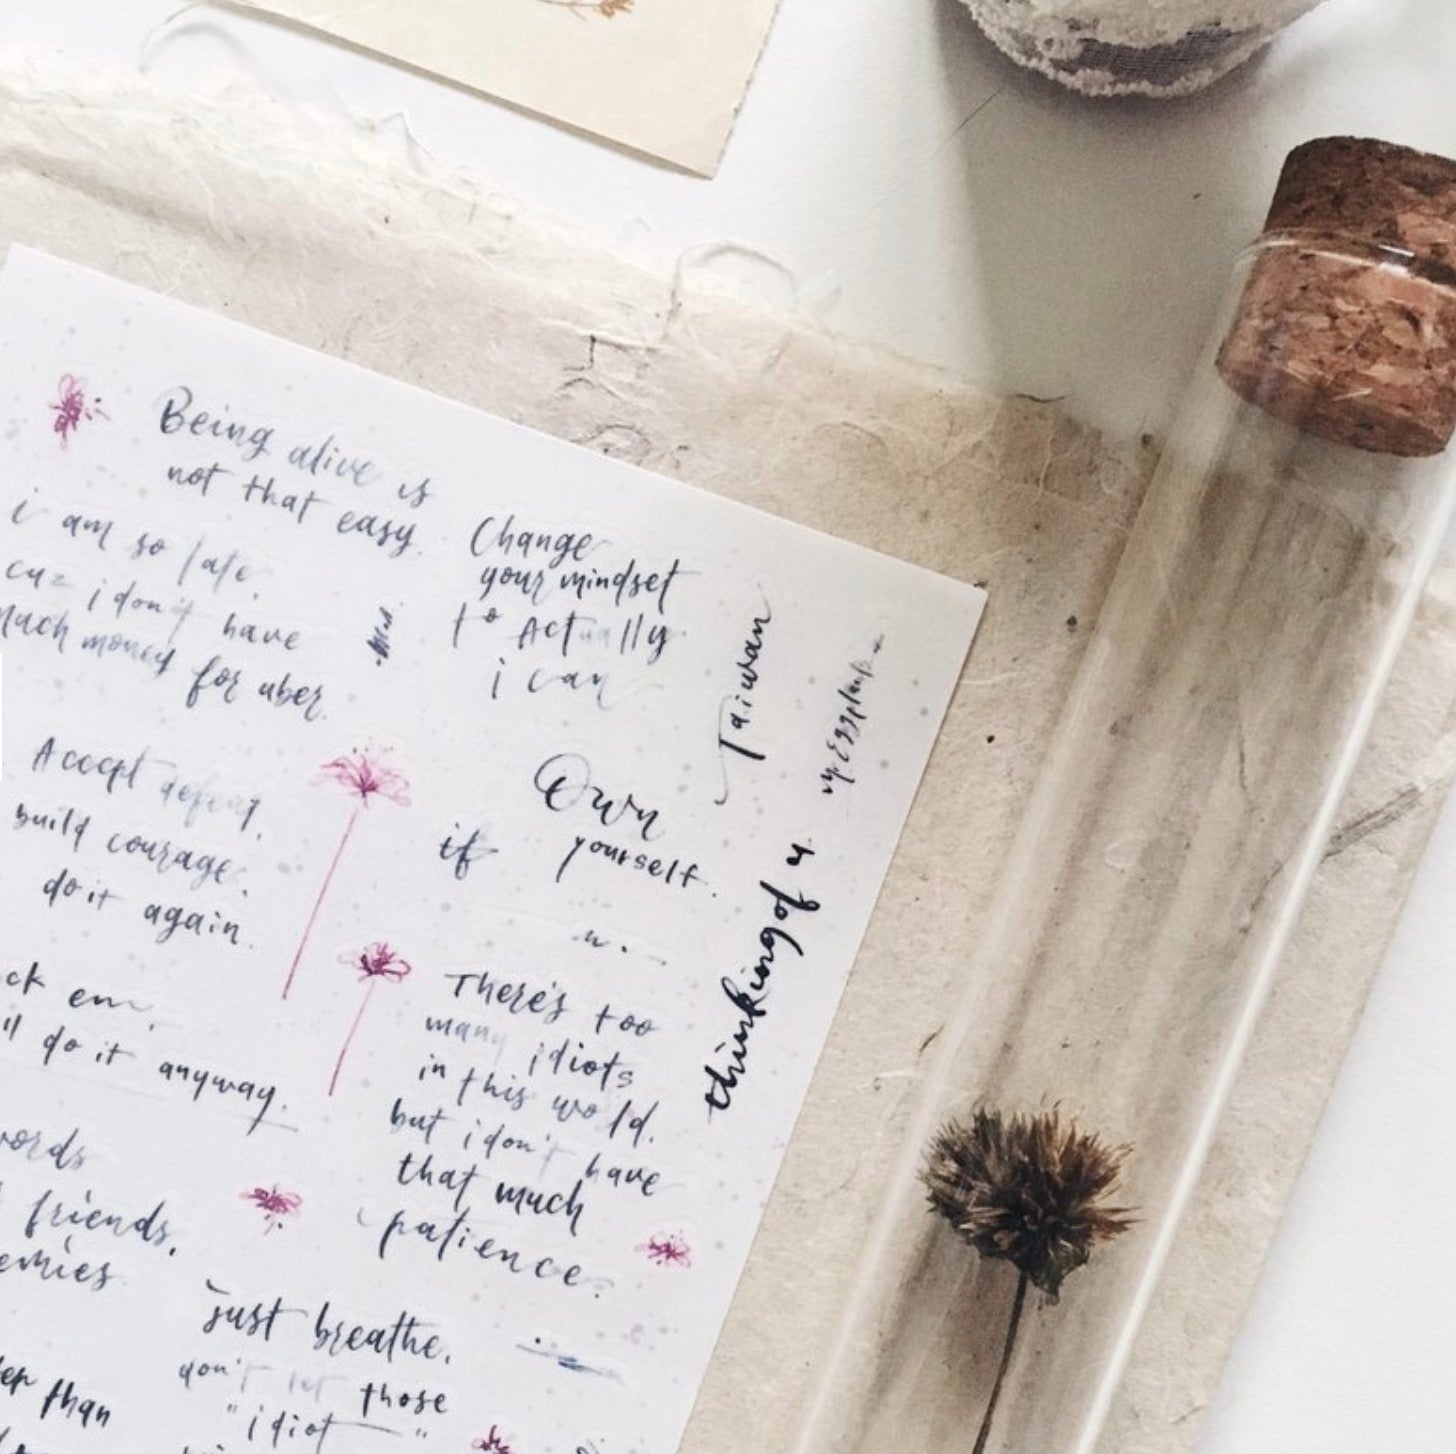 Being alive is
not that easy.
i am so late.
cuz i don't have
much money for uber.
Change
your mindset
to Actually
i can
Taiwan
Accept defeat,
build courage.
do it again.
Own
if yourself.
thinking of u.
ck em,
do it anyway.
There's too
many idiots
in this world.
but i don't have
that much
patience.
words
friends,
emies
just breathe.
don't let those
"idiot"
er than